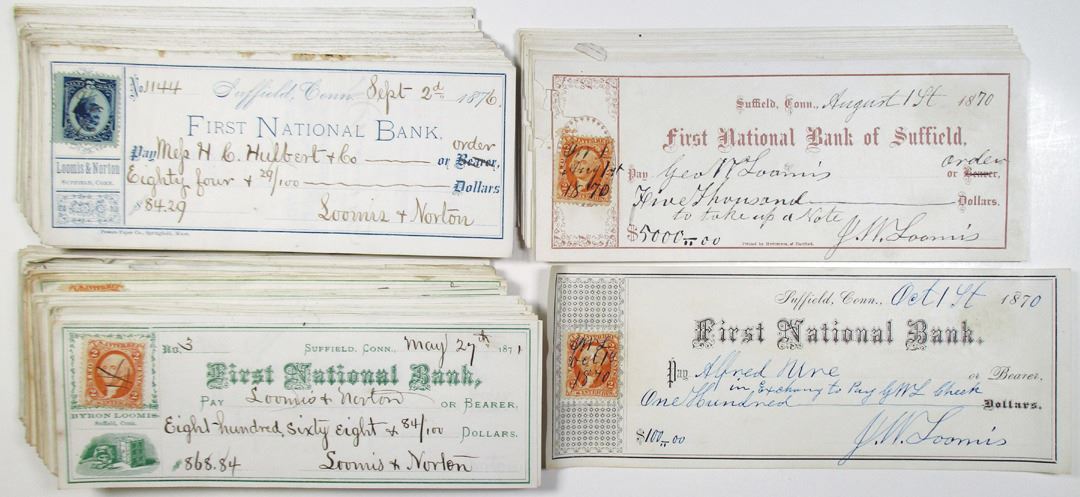 No. 1144 Suffield, Conn. Sept 2d 1876.
FIRST NATIONAL BANK.
Pay Mess H. C. Hulbert & Co order
or Bearer,
Eighty four & 29/100 Dollars
$84.29 Loomis & Norton
Loomis & Norton
SUFFIELD, CONN.
Powers Paper Co., Springfield, Mass.
Suffield, Conn., August 1St 1870
First National Bank of Suffield,
Pay Geo W Loomis order
or Bearer,
Five Thousand Dollars.
to take up a Note
$5000.00 J. W. Loomis
1870
No. 3 SUFFIELD, CONN., May 27th 1871
First National Bank,
PAY Loomis & Norton OR BEARER,
Eight-hundred, Sixty Eight & 84/100 DOLLARS.
$868.84 Loomis & Norton
BYRON LOOMIS
Suffield, Conn.
Suffield, Conn., Oct 1St 1870
First National Bank.
Pay Alfred or Bearer,
in Exchang to Pay GWL Check
One Hundred Dollars.
$100.00 J. W. Loomis
Oct 1st
1870